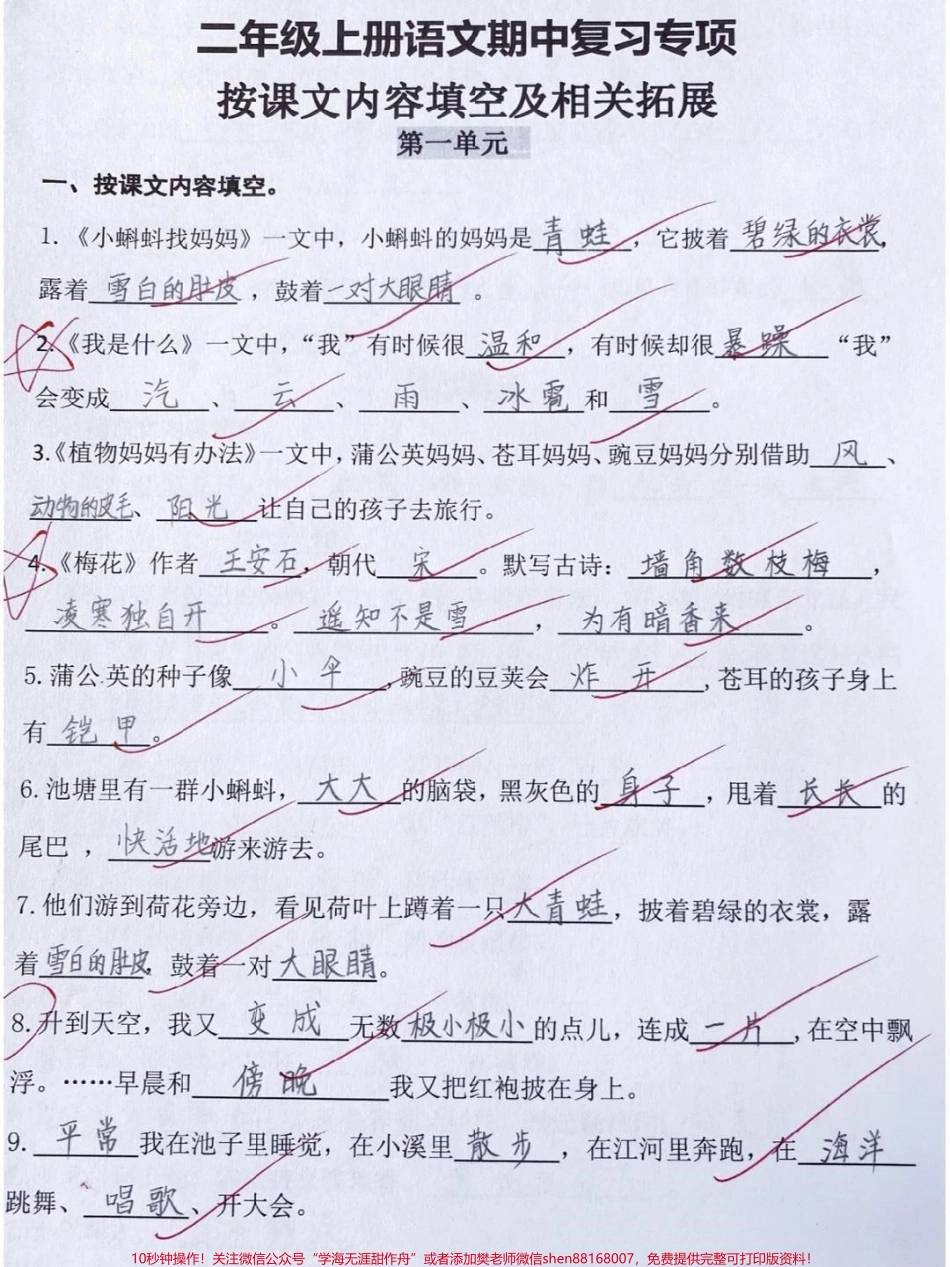 二年级上册语文期中复习专项
按课文内容填空及相关拓展
第一单元
一、按课文内容填空。
1.《小蝌蚪找妈妈》一文中，小蝌蚪的妈妈是青蛙，它披着碧绿的衣裳，
露着雪白的肚皮，鼓着一对大眼睛。
2.《我是什么》一文中，“我”有时候很温和，有时候却很暴躁“我”
会变成汽、云、雨、冰雹和雪。
3.《植物妈妈有办法》一文中，蒲公英妈妈、苍耳妈妈、豌豆妈妈分别借助风、
动物的皮毛、阳光让自己的孩子去旅行。
4.《梅花》作者王安石，朝代宋。默写古诗：墙角数枝梅，
凌寒独自开。遥知不是雪，为有暗香来。
5.蒲公.英的种子像小伞,豌豆的豆荚会炸开,苍耳的孩子身上
有铠甲。
6.池塘里有一群小蝌蚪，大大的脑袋，黑灰色的身子，甩着长长的
尾巴，快活地游来游去。
7.他们游到荷花旁边，看见荷叶上蹲着一只大青蛙，披着碧绿的衣裳，露
着雪白的肚皮，鼓着一对大眼睛。
8.升到天空，我又变成无数极小极小的点儿，连成一片,在空中飘
浮。……早晨和傍晚我又把红袍披在身上。
9.平常我在池子里睡觉，在小溪里散步，在江河里奔跑，在海洋
跳舞、唱歌、开大会。
10秒钟操作！关注微信公众号“学海无涯甜作舟”或者添加樊老师微信shen88168007，免费提供完整可打印版资料！